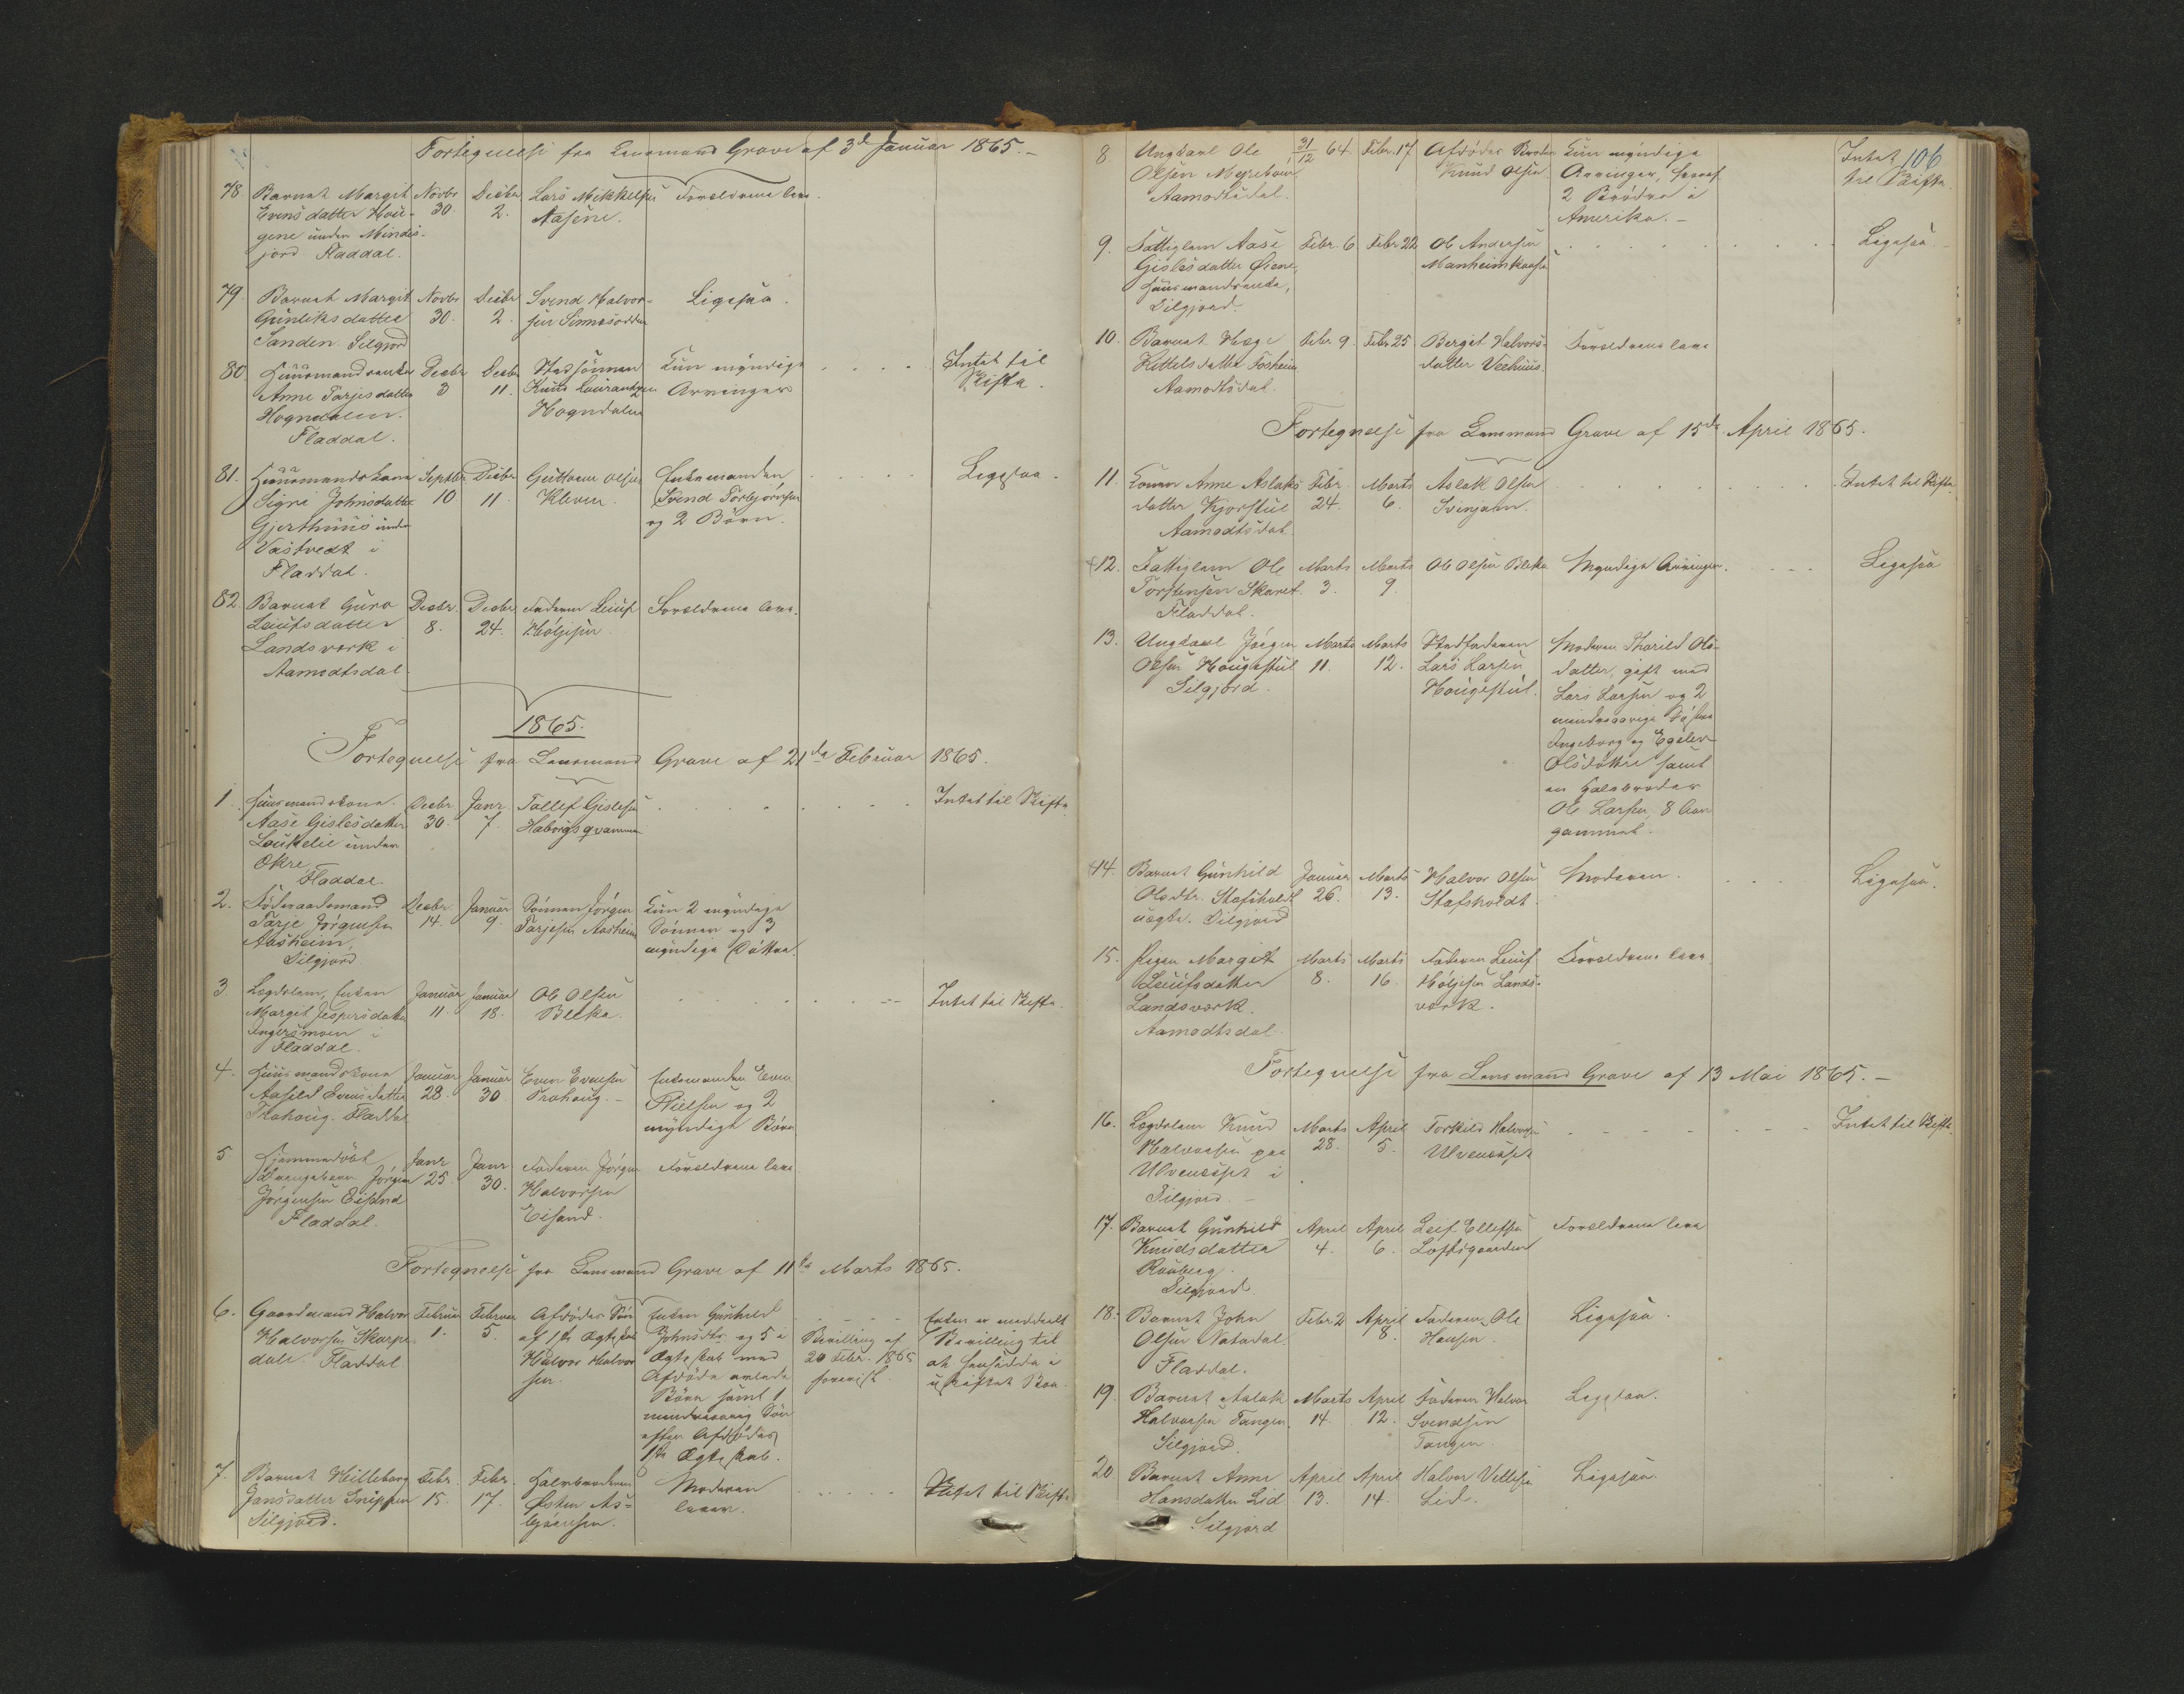 Fortegnelse fra Lensmand Grave af 3de Januar 1865.-
78. Barnet Margit Novbr Decbr Lars Mikkelsen Forældrene leve.
Evensdatter Hau- 30. 2. Aasene.
gene under Mindes-
jord Fladdal.
79. Barnet Margit Novbr Decbr Svend Halvor- Ligesaa.
Gunliksdatter 30. 2. sen Sinnesodden
Sanden. Silgjord
80 Huusmandsenke Decbr Decbr Stedsønnen Kun myndige Intet til
Anne Tarjesdatter 3 11. Knud Laurantzen Arvinger Skifte.
Hogndalen. Hogndalen
Fladdal.
81. Huusmandskone Septbr Decbr Guttorm Olsen Enkemanden Ligesaa.
Sigri Johnsdatter 10 11. Kleven. Svend Torbjørnsen
Gjerthuus under og 2 Børn.
Vastvedt i
Fladdal.
82. Barnet Guro Decbr. Decbr Faderen Leiuf Forældrene leve.
Leiufsdatter 8. 24. Høljesen.
Landsverk i
Aamodtsdal.
1865.
Fortegnelse fra Lensmand Grave af 21de Februar 1865.
1. Huusmandskone Decbr. Janr. Tallef Gislesen Intet til Skifte.
Aase Gislesdatter 30. 7. Haborgsqvammen
Loukelie under
Økre,
Fladdal.
2. Føderaadsmand Decbr Januar Sønnen Jørgen Kun 2 myndige
Tarje Jørgensen 14. 9. Tarjesen Aasheim Sønner og 3
Aasheim, myndige Døttre.
Silgjord.
3. Lægdslem, Enken Januar Januar Ole Olsen Intet til Skifte.
Margit Jespersdatter 11. 18. Bleka.
Ingersmoen i
Fladdal.
4. Huusmandskone Januar Januar Even Evensen Enkemanden Even
Aasild Evensdatter 28. 30. Trahoug. Nielsen og 2
Trahoug. Fladdal myndige Børn
5 Hjemmedøbt Janr Janr Faderen Jørgen Forældrene leve
Drengebarn Jørgen 25 30. Halvorsen
Jørgensen Eisand Eisand.
Fladdal.
Fortegnelse fra Lensmand Grave af 11te Marts 1865.
6. Gaardmand Halvor Februar Februar Afdødes Søn Enken Gunhild Enken er meddeelt
Halvorsen Skarpe- 1. 5. af 1ste Ægteskab Johnsdtr. og 5 i Bevilling af Bevilling til
dale. Fladdal Halvor Halvor- Ægteskab med 20 Febr. 1865 at hensidde i
sen. Afdøde avlede forevist. uskiftet Boe.
Børn samt 1
mindreaarig Søn
efter Afdødes
1ste Ægteskab.
7. Barnet Hilleborg Febr. Febr. Halvbroderen Moderen Intet til Skifte
Jansdatter Snippen 15. 17. Østen As- lever.
Silgjord. bjørnsen.
106
8. Ungkarl Ole 31/12 64. Febr. 17 Afdødes Broder Kun myndige Intet
Olsen Myrebøen Knud Olsen Arvinger, hvoraf til Skifte.
Aamodtsdal. 2 Brødre i
Amerika.-
9. Fattiglem Aase Febr. 6 Febr. 22 Ole Andersen Ligesaa.
Gislesdatter Øiene, Manheimkaasa
Huusmandsenke,
Silgjord.
10. Barnet Hæge Febr. 9. Febr. 25 Bergit Halvors- Forældrene leve
Kittelsdatter Fosheim datter Veehuus.
Aamodtsdal.
Fortegnelse fra Lensmand Grave af 15de April 1865.
11. Konen Anne Aslaks- Febr. Marts Aslak Olsen Intet til Skifte.
datter Kjorstul 24. 6. Svinjaan.
Aamodtsdal.
12. Fattiglem Ole Marts Marts Ole Olsen Bleka Myndige Arvinger. Ligesaa
Torstensen Skaret. 3. 9.
Fladdal.
13. Ungkarl Jørgen Marts Marts Stedfaderen Moderen Thorild Ols-
Olsen Hougestul 11. 12. Lars Larsen datter, gift med
Silgjord. Hougestul. Lars Larsen og 2
mindreaarige Søstre
Ingeborg og Egelev
Olsdøttre samt
en Halvbroder
Ole Larsen, 8 Aar
gammel.
14. Barnet Gunhild Januar Marts Halvor Olsen Moderen. Ligesaa.
Olsdtr. Stafsholdt 26. 13. Stafsholdt.
uægte. Silgjord
15. Pigen Margit Marts Marts Faderen Leiuf Forældrene leve
Leiufsdatter 8. 16. Høljesen Lands-
Landsverk. verk.
Aamodtsdal.
Fortegnelse fra Lensmand Grave af 13 Mai 1865.-
16. Lægdslem Knud Marts April Torkild Halvorsen Intet til Skifte.
Halvorsen paa 28. 5. Ulveneset
Ulveneset i
Silgjord.-
17. Barnet Gunhild April April Leif Ellefsen Forældrene leve
Knudsdatter 4. 6. Loftsgaarden
Rauberg.
Silgjord
18. Barnet John Febr. 2 April Faderen Ole Ligesaa.
Olsen Natadal. 8. Hansen.
Fladdal.
19. Barnet Aslak Marts April Faderen Halvor Ligesaa.
Halvorsen Tangen. 14. 12. Svendsen
Silgjord. Tangen
20. Barnet Anne April April Halvor Vetlesen Ligesaa.
Hansdatter Lid 13. 14. Lid.
Silgjord